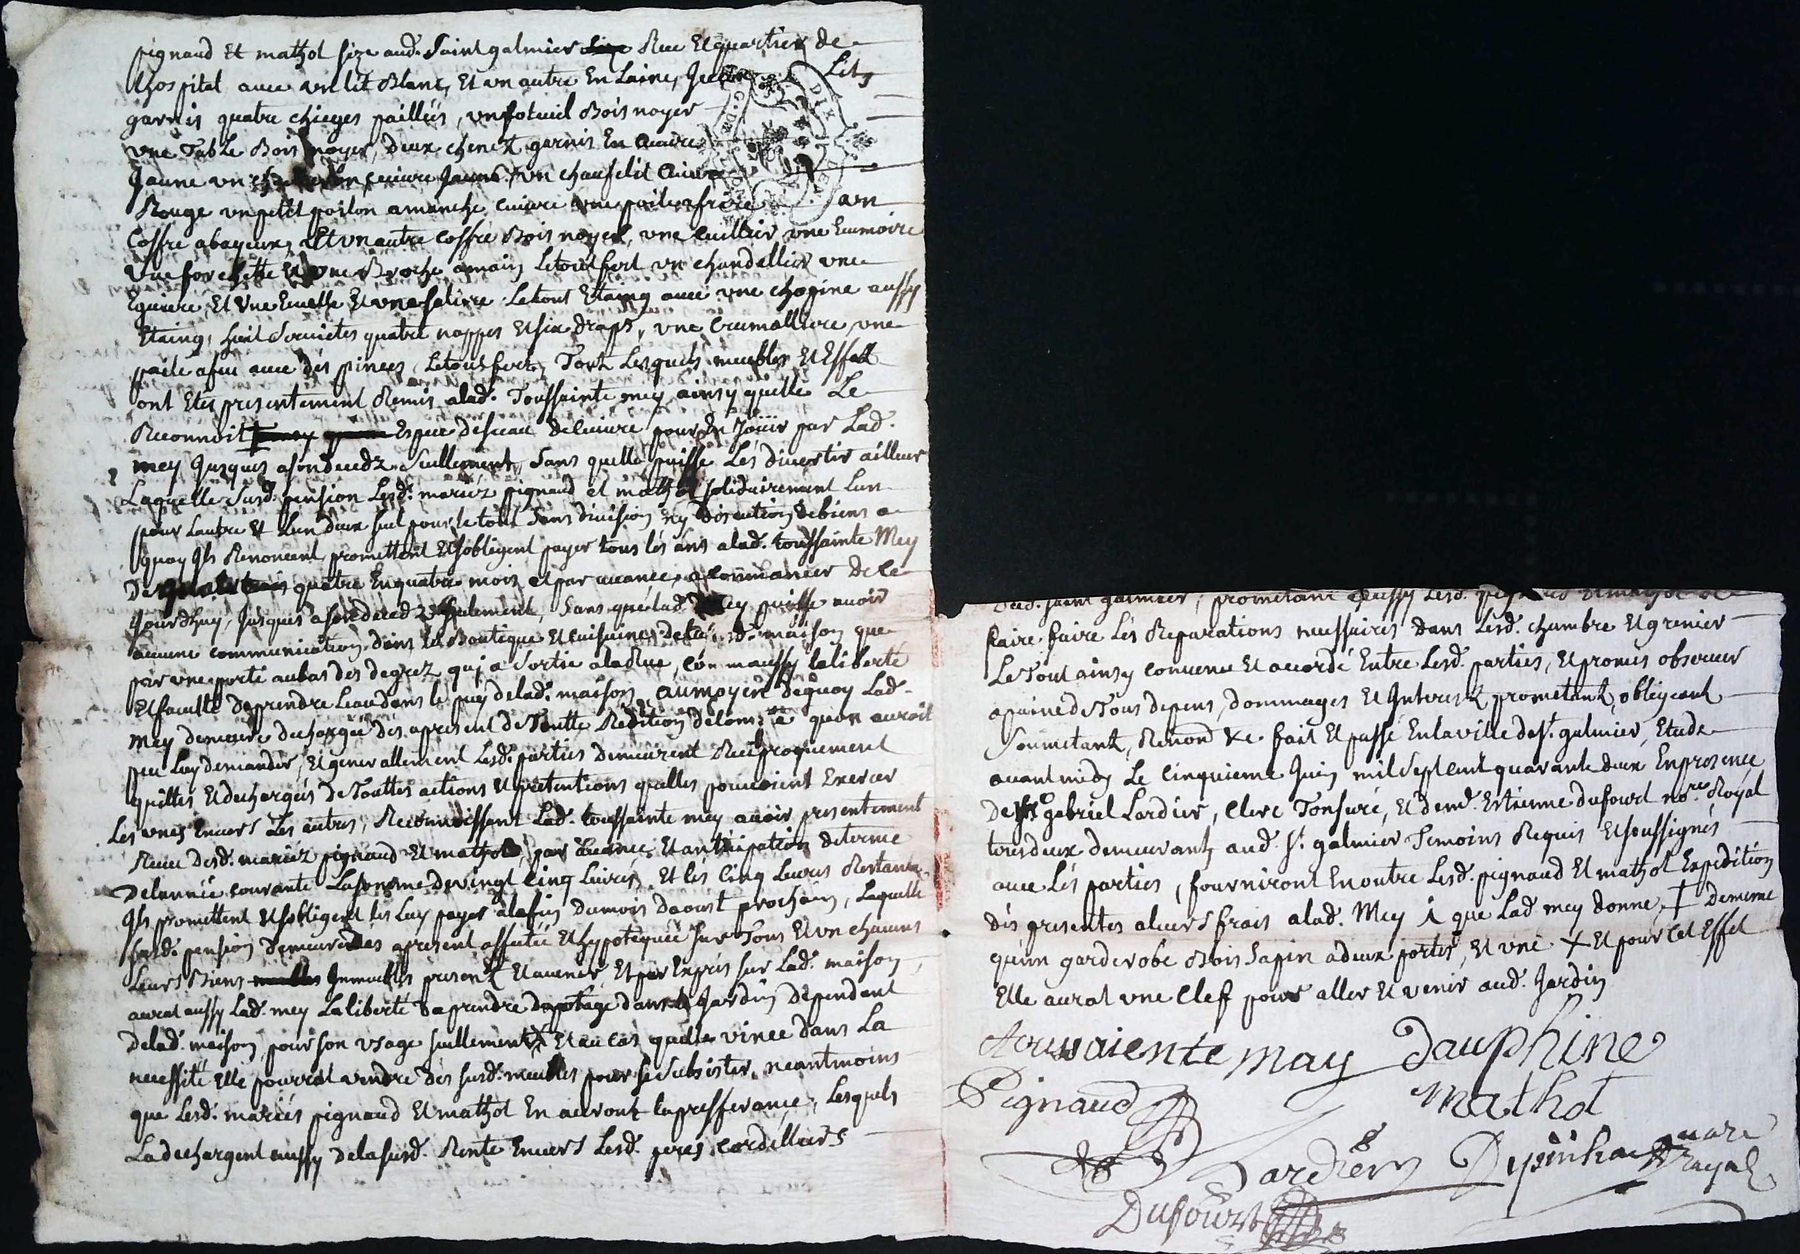 pignaud Et mathot size aud. Saint galmier Rue Et quartier de
Lhospital avec un lit Blanc, Et un autre En Laine,
Lits
garnis quatre chieges paillés, un foteuil Bois noyer
une Table Bois noyer, deux chenez garnis En cuivre
Jaune un cuivre Jaune, un chaufelit Cuivre
Rouge un petit poilon amanche cuivre une poile afrire un
Coffre abayeux, Et un autre coffre Bois noyer, une cuillier une Ecumoire
une forchette Et une Broche amain Letout fert un chandellier une
Eguiere Et Une Ecuelle Et une saliere Letout Etaing avec une chopine aussy
Etaing, huit Serviettes quatre nappes Et six draps, une Cremalliere, une
paele afeu avec des pinces, Letout fert, Toutz Lesquels meubles Et Effetz
ont Etes presentement Remis alad. Toussainte mey ainsy quelle Le
Reconnoit Espece deseau decuivre pour En Jouir par Lad.
mey Jusques asondecedz Seullement, Sans quelle puisse Les divertir ailleur
Laquelle Susd. pension Lesd. mariéz pignaud et mathot solidairement Lun
pour Lautre Et Lun deux seul pour le tout Sans division ny discution debiens a
quoy Ils Renoncent promettent Et sobligent payer tous les ans alad. toussainte Mey
De quatre Enquatre mois et par avance, a commancer de ce
Jourdhuy, Jusques asondecedz seulement, Sans que lad. Mey puisse avoir
aucune communication dans la Boutique Et cuisine de lad. maison que
par une porte aubas des degrez qui a Sortie alaRue, comm aussy la liberté
Et faculté deprendre Leau dans le puy delad. maison, aumoyen dequoy Lad.
Mey demeure dechargée des apresent de Toutte Redition de compte quon auroit
peu Luy demander, Et generallement Lesd. parties demeurent Reciproquement
quittes Et dechargés de Touttes actions Et pretentions quelles pouvoient Exercer
Les unes Envers Les autres, Reconnoissant Lad. toussainte mey avoir presentement
Receu desd. mariéz pignaud Et mathot par avance Et anticipation determe
Delannée courante Lasomme de vingt cinq Livres, Et les Cinq Livres Restantes
Ils promettent Et sobligent les Luy payer alafin dumois daoust prochain, Laquelle
susd. pension demeure des apresent affectée Et hypotequée sur Tous Et un chacuns
Leurs Biens Immeubles presentz Et avenir Et par Exprés sur Lad. maison,
aurat aussy Lad. mey La liberté deprendre du potage dans le Jardin dependent
delad. maison, pour son usage seullement X Et au cas quelle vince dans La
necessité Elle pourrat vendre des susd. meubles pour se subsister, neantmoins
que Lesd. mariés pignaud Et mathot En auront la prefferance, Lesquels
La dechargent aussy delasusd. Rente Envers Lesd. peres cordelliers
dud. saint galmier, prometant aussy Lesd. pignaud Et mathot de
faire faire Les Reparations necessaires dans Lesd. chambre Et grenier
Le Tout ainsy convenu Et accordé Entre Lesd. parties, Et promis observer
apaine de Tous depens, dommages Et Interestz prometantz, obligeant
Soumetantz, Renond &c. fait Et passé Enlaville de St. galmier, Etude
avant midy Le Cinquieme Juin mil sept cent quarante deux Enpresence
de Mre gabriel Lardier, Clerc Tonsuré, Et de md. Estienne dufourd nore. Royal
tousdeux demeurantz aud. St. galmier Temoins Requis Et soussignés
avec Les parties, fourniront Enoutre Lesd. pignaud Et mathot Expedition
des presentes aleurs frais alad. Mey que Lad mey donne, + demême
quun garderobe Bois Sapin adeux portes, Et une X Et pour cet Effet
Elle aurat une Cleff pour aller Et venir aud. Jardin
touvaiente may dauphine
Pignaud mathot
Lardier
nore
royal
Dufourt